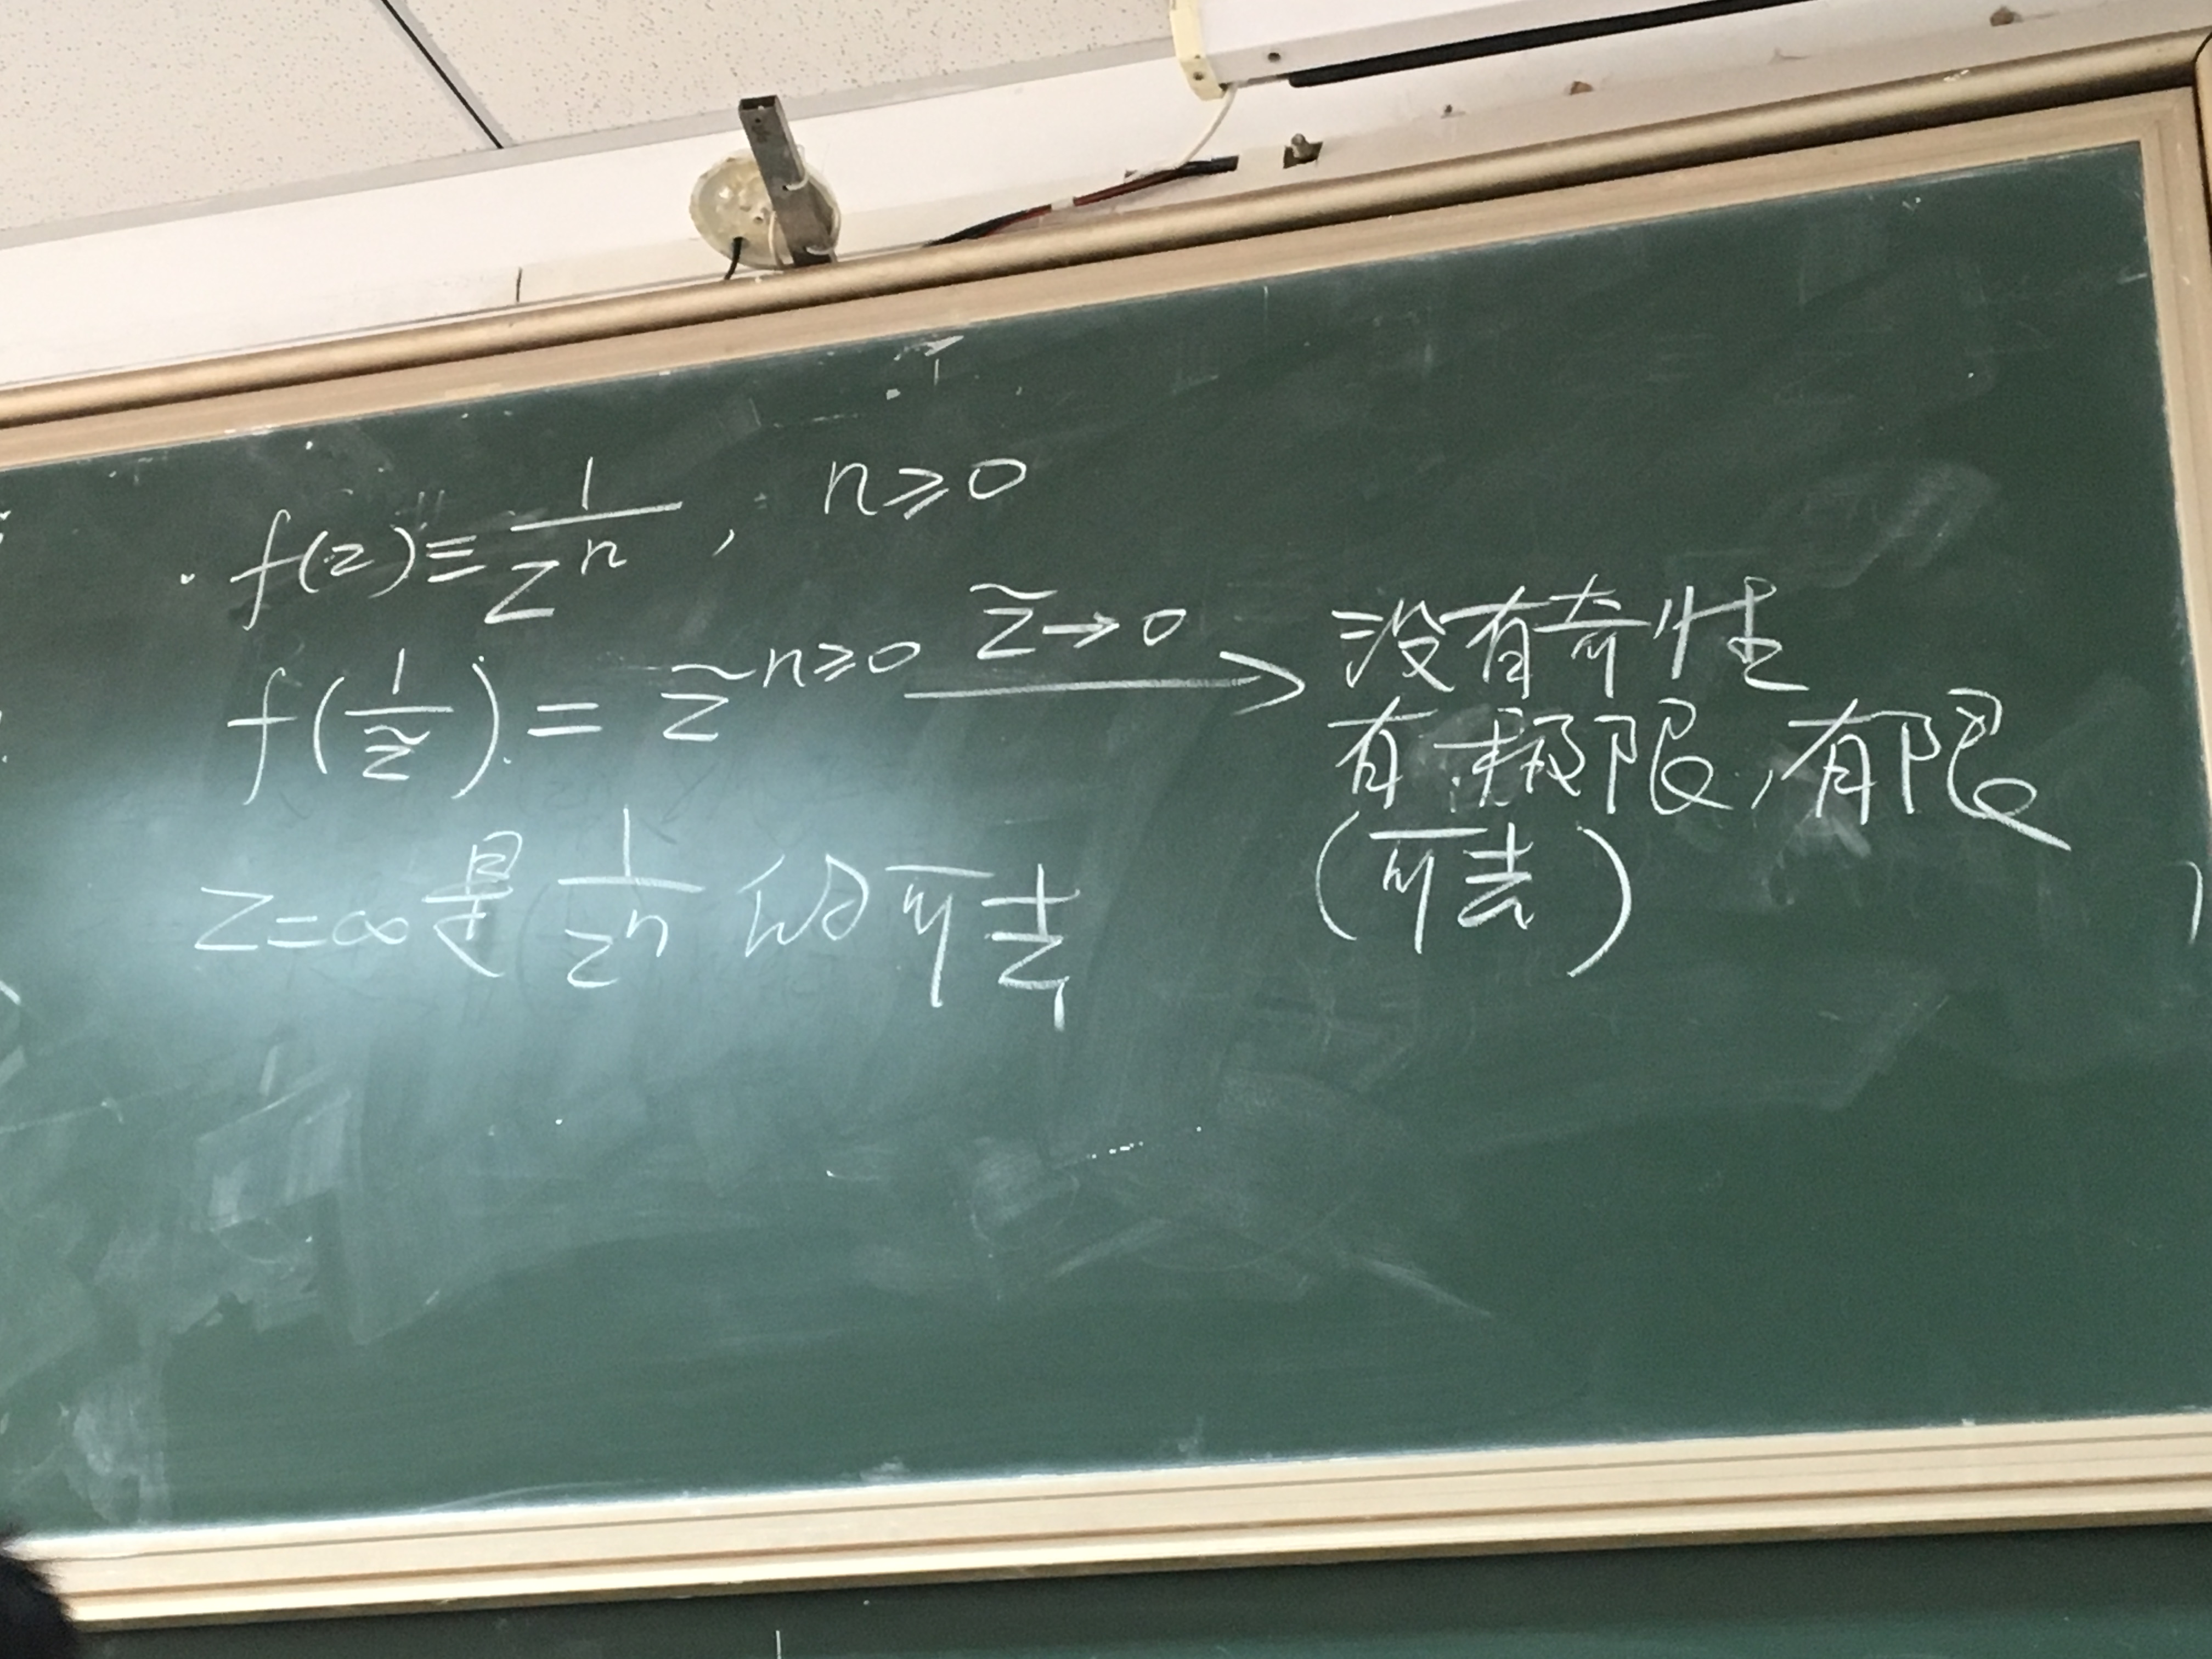 · f(z) ≡ 1/z^n , n ≥ 0
f(1/z̃) = z̃^{n≥0} —z̃→0→ 没有奇性
有极限,有限
(可去)
z=∞是 1/z^n 的可去